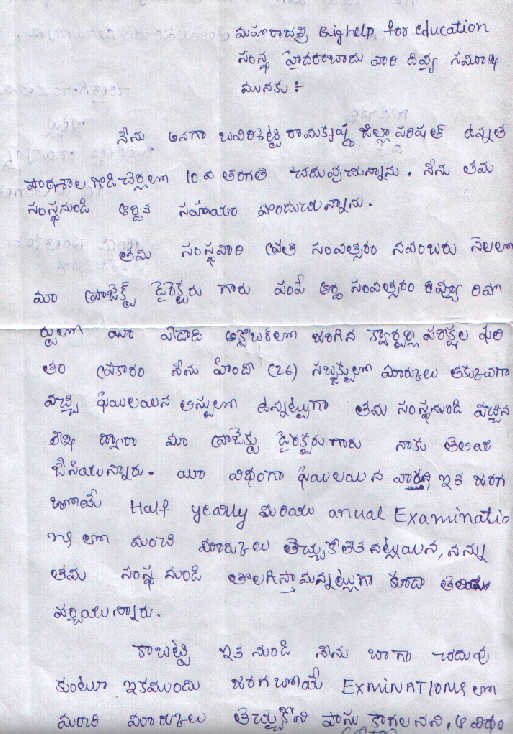 మహారాజశ్రీ Bighelp for education
సంస్థ హైదరాబాదు వారి దివ్య సముఖ
మునకు :-
నేను అనగా రామకృష్ణ జిల్లా పరిషత్ ఉన్నత
పాఠశాల 10 వ తరగతి చదువుచున్నాను. నేను తమ
సంస్థనుండి ఆర్థిక సహాయం పొందుచున్నాను.
తమ సంస్థవారి ప్రతి సంవత్సరం నవంబరు నెలలో
మా ప్రాజెక్ట్ డైరెక్టరు గారు పంపే అర్ధ సంవత్సరం రివ్యూ రిపో
ర్టులో మా అక్టోబర్‌లో జరిగిన క్వార్టర్లి పరీక్షల ఫలి
తం ప్రకారం నేను హింది (26) సబ్జెక్టులో మార్కులు తక్కువగా
వచ్చి ఫెయిలయిన లిస్టులో ఉన్నట్లుగా తమ సంస్థనుండి వచ్చిన
లిస్టు ద్వారా మా ప్రాజెక్టు డైరెక్టరుగారు నాకు తెలియ
చేసియున్నారు. యీ విధంగా ఫెయిలయిన వార్ని ఇక జరగ
బోయే Half yeailly మరియు anual Examinatio
ns లో మంచి మార్కులు తెచ్చుకోలేక పోయిన, నన్ను
తమ సంస్థ నుండి తొలగిస్తామన్నట్లుగా కూడా తెలియ
పర్చియున్నారు.
కాబట్టి ఇక నుండి నేను బాగా చదువు
కుంటూ ఇకముందు జరగబోయే EXMINATIONS లో
మంచి మార్కులు తెచ్చుకొని పాసు కాగలనని, ఆ విధం